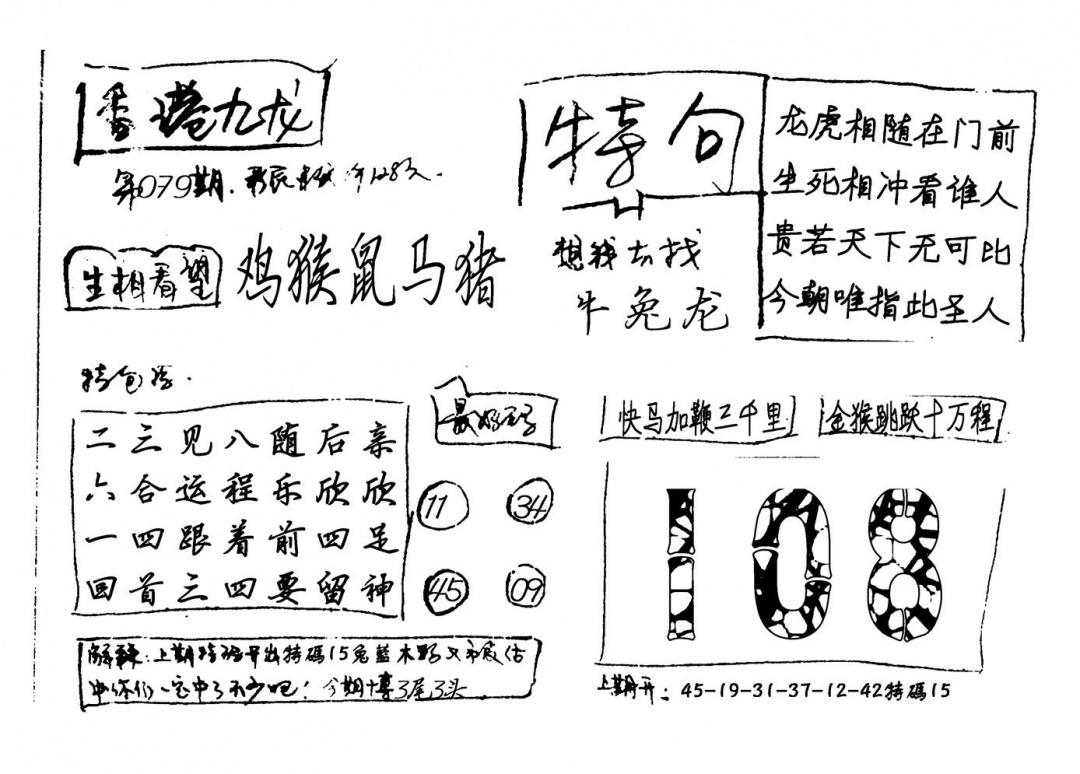 香港九龙
第079期.
生相看望
鸡猴鼠马猪
特句
想我去找
牛兔龙
龙虎相随在门前
生死相冲看谁人
贵若天下无可比
今朝唯指此圣人
二三见八随后亲
六合运程乐欣欣
一四跟着前四足
回首三四要留神
11
34
45
09
快马加鞭三千里
金猴跳跃十万程
108
上期开出特碼15兔蓝木野又
中你们一定中了不少吧!今期博3尾3头
上期开:45-19-31-37-12-42特碼15